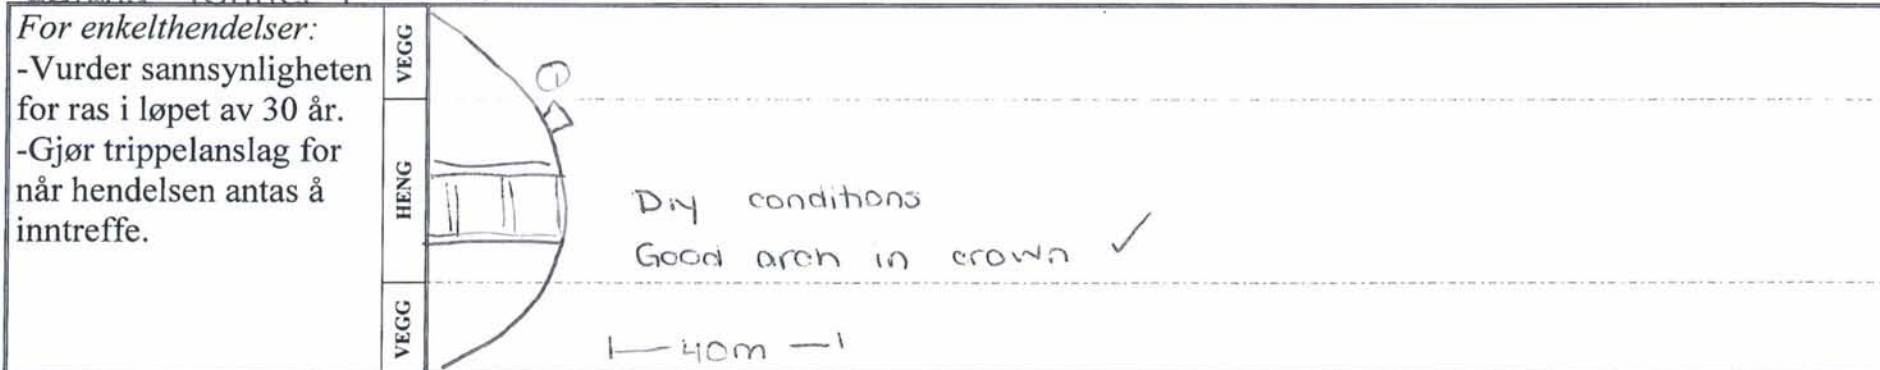 For enkelthendelser:
-Vurder sannsynligheten
for ras i løpet av 30 år.
-Gjør trippelanslag for
når hendelsen antas å
inntreffe.
VEGG
HENG
VEGG
Dry conditions
Good arch in crown ✓
40m